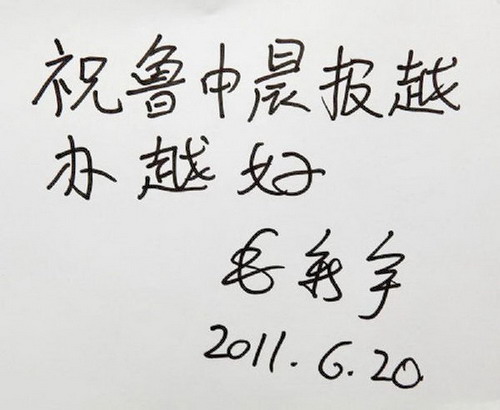 祝鲁中晨报越
办越好
毛新宇
2011.6.20